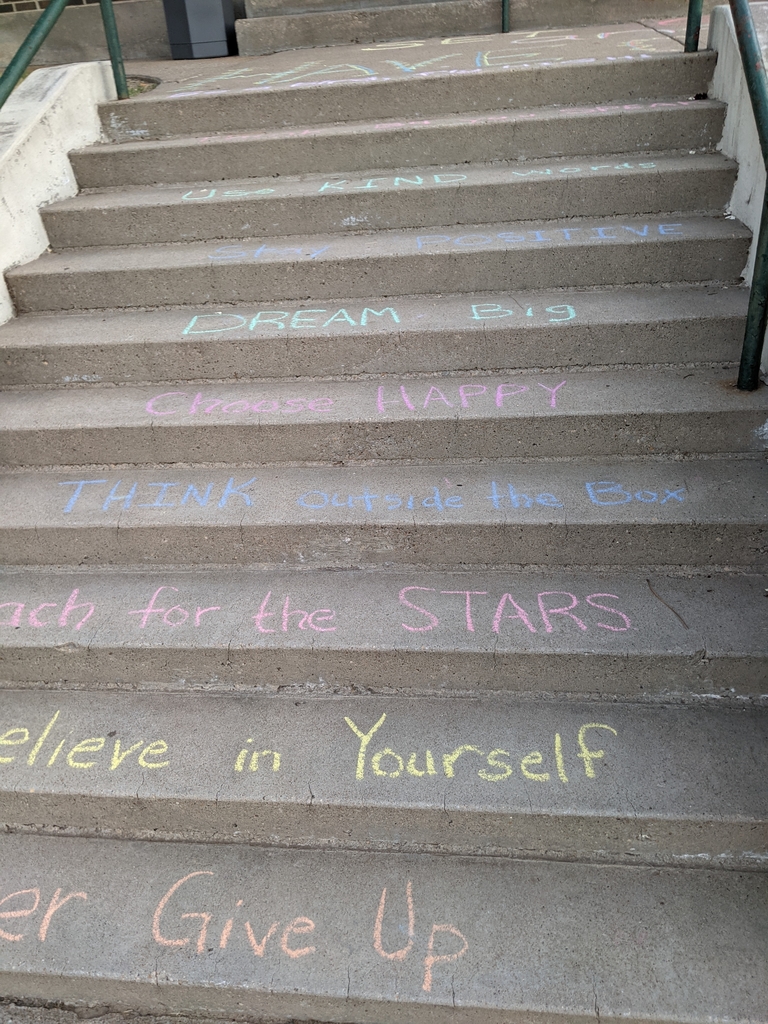 Use KIND words
Stay POSITIVE
DREAM Big
Choose HAPPY
THINK outside the Box
ach for the STARS
elieve in Yourself
er Give Up